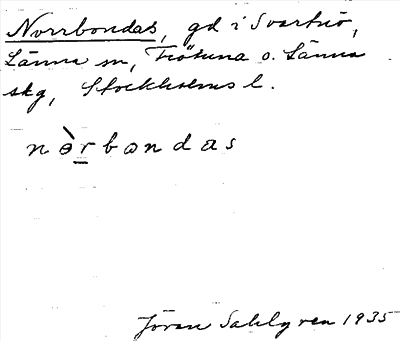 Norrbondas, gd i Svartnö,
Länna sn, Frötuna o. Länna
skg, Stockholms l.
nòrbondas
Jöran Sahlgren 1935